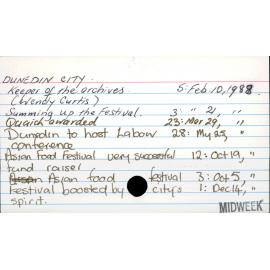 DUNEDIN CITY.
Keeper of the archives 5: Feb 10, 1988.
(Wendy Curtis)
Summing up the Festival. 3: " 21, "
awarded 23: Mar 29, "
Dunedin to host Labour 28: My 25, "
conference
Asian Food Festival very successful 12: Oct 19, "
fund raiser
Asian Asian food festival 3: Oct 5, "
Festival boosted by city's 1: Dec 14, "
spirit.
MIDWEEK